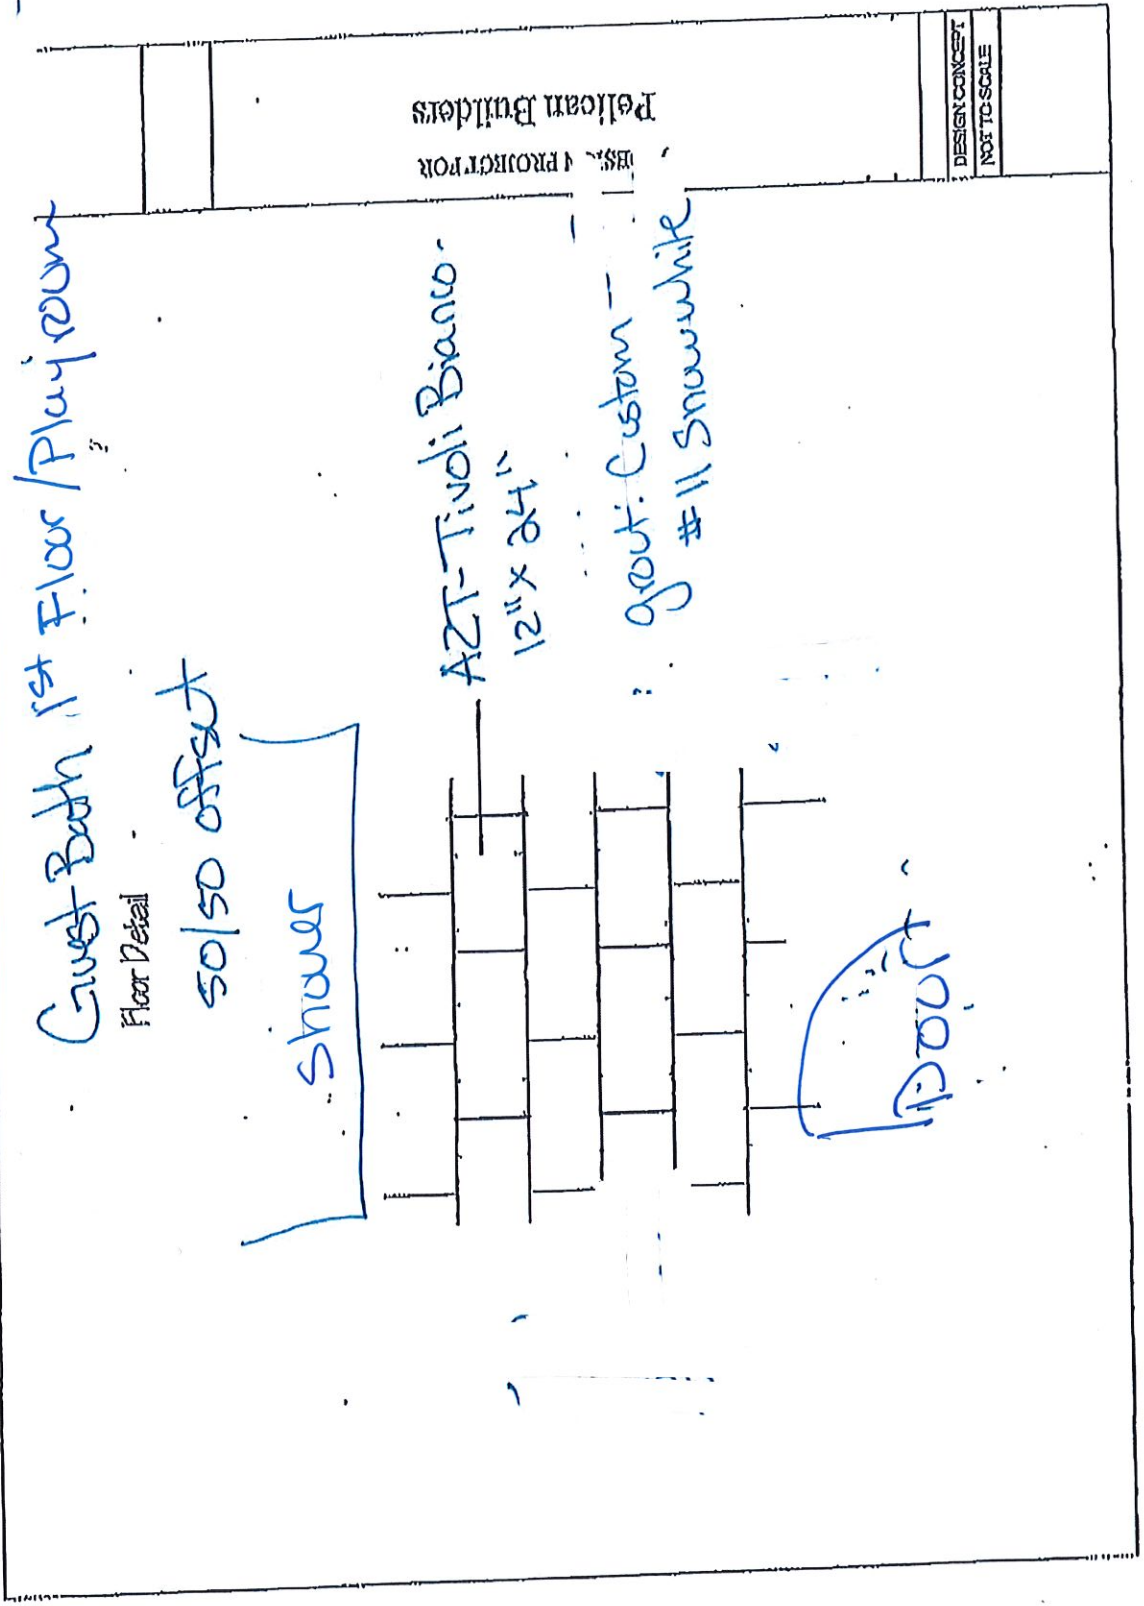 Guest Bath 1st Floor/Playroom
Floor Detail
50/50 offset
Shower
AZT-Tivoli Bianco
12" x 24"
grout: Custom -
#11 Snowwhite
Door
PROJECT FOR
Pelican Builders
DESIGN CONCEPT
NOT TO SCALE